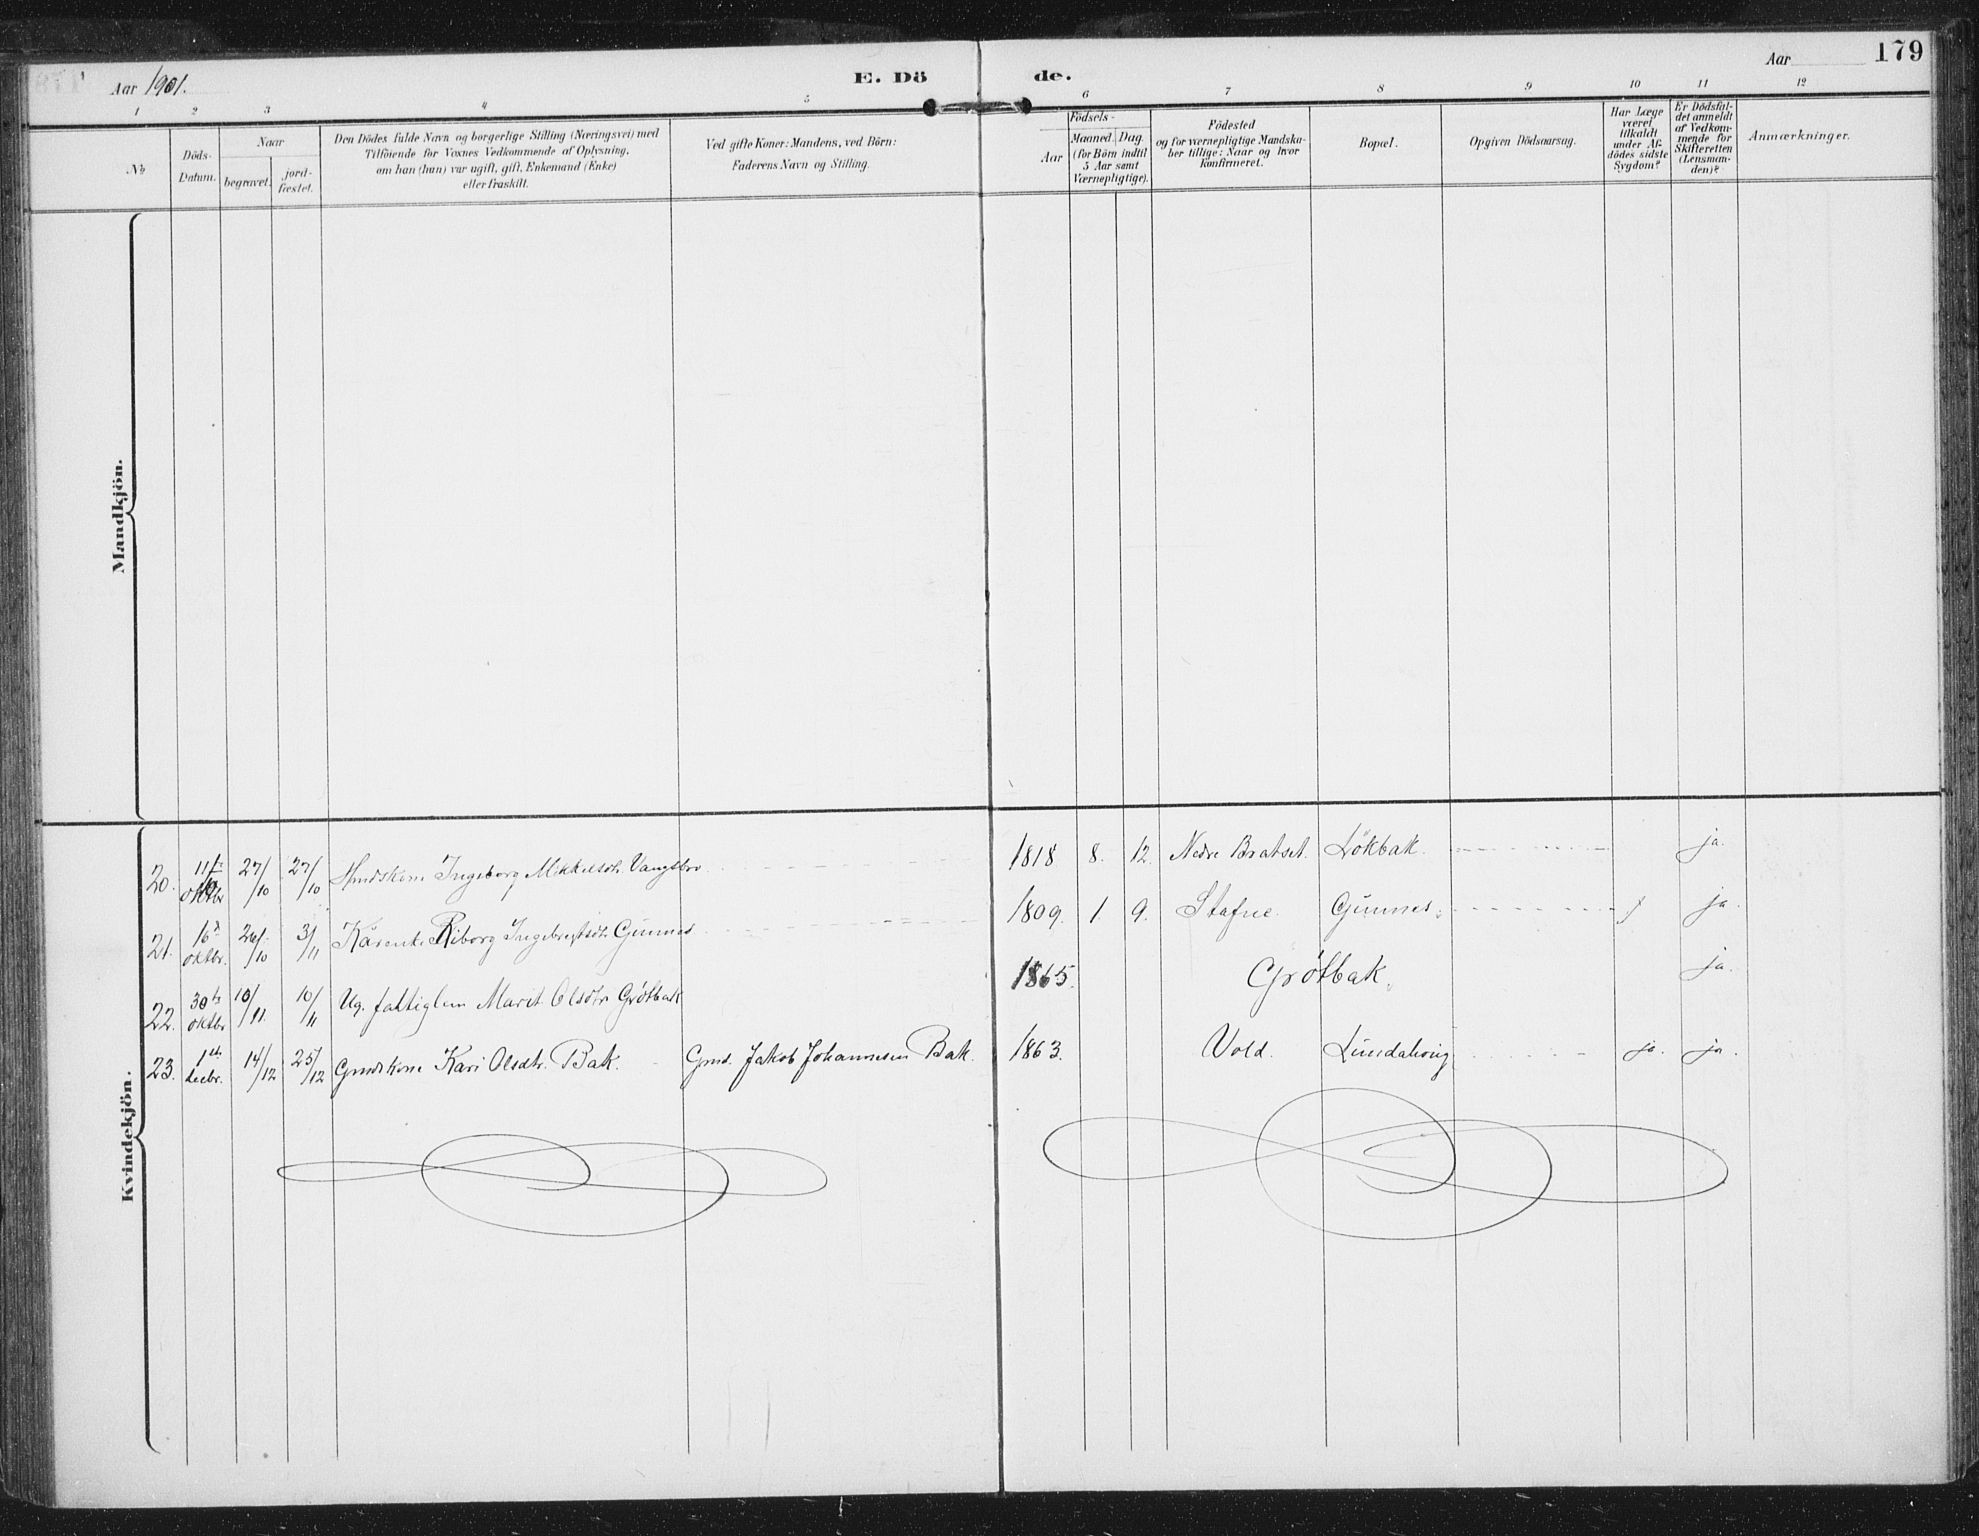 Aar 1901.
E. Dö
de.
Aar
179
1 2 3 4 5 6 7 8 9 10 11 12
No
Döds-
Datum.
Naar
begravet.
jord-
fæstet.
Den Dödes fulde Navn og borgerlige Stilling (Næringsvei) med
Tilföiende for Voxnes Vedkommende af Oplysning,
om han (hun) var ugift, gift, Enkemand (Enke)
eller fraskilt.
Ved gifte Koner: Mandens, ved Börn:
Faderens Navn og Stilling.
Födsels-
Aar
Maaned. Dag.
(for Börn indtil
5 Aar samt
Værnepligtige).
Födested
og for værnepligtige Mandska-
ber tillige: Naar og hvor
Konfirmeret.
Bopæl.
Opgiven Dödsaarsag.
Har Læge
været
tilkaldt
under Af-
dödes sidste
Sygdom?
Er Dödsfal-
det anmeldt
af Vedkom-
mende for
Skifteretten
(Lensman-
den)?
Anmærkninger.
Mandkjön.
Kvindekjön.
20. 11te oktbr 27/10 27/10 Ingeborg Mikkelsdtr. Vangsbro 1818 8. 12. Nedre Bratset. Lökbak. ja.
21. 16de oktbr. 26/10 3/11 Kårenke Riborg Ingebrigtsdtr Gunnes 1809. 1 9. Stafne. Gunnes. ja.
22. 30te oktbr 10/11 10/11 Ug. fattiglem Marit Olsdtr Grötbak 1865. Grötbak. ja.
23. 1ste decbr. 14/12 25/12 Gmdskone Kari Olsdtr. Bak. Gmd. Jakob Johannesen Bak. 1863. Vold. ja. ja.